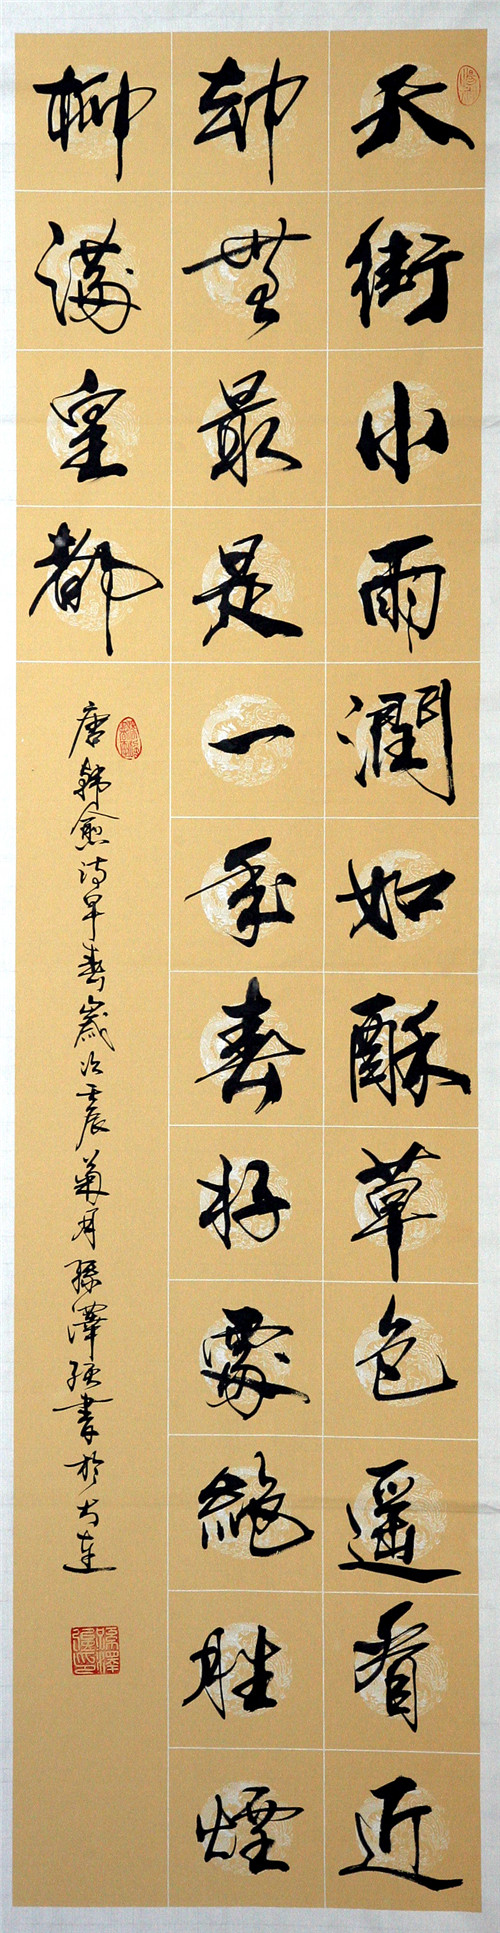 天街小雨潤如酥草色遥看近
却無最是一年春好處絶勝煙
柳滿皇都
唐韓愈詩早春歲次壬辰菊月孫澤強書於大連